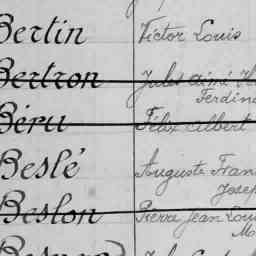 Bertin Victor Louis
Bertron Jules Aimé
Ferdin
Béru Félix Albert
Beslé Auguste Fran
Josep
Beslon Pierre Jean Loui